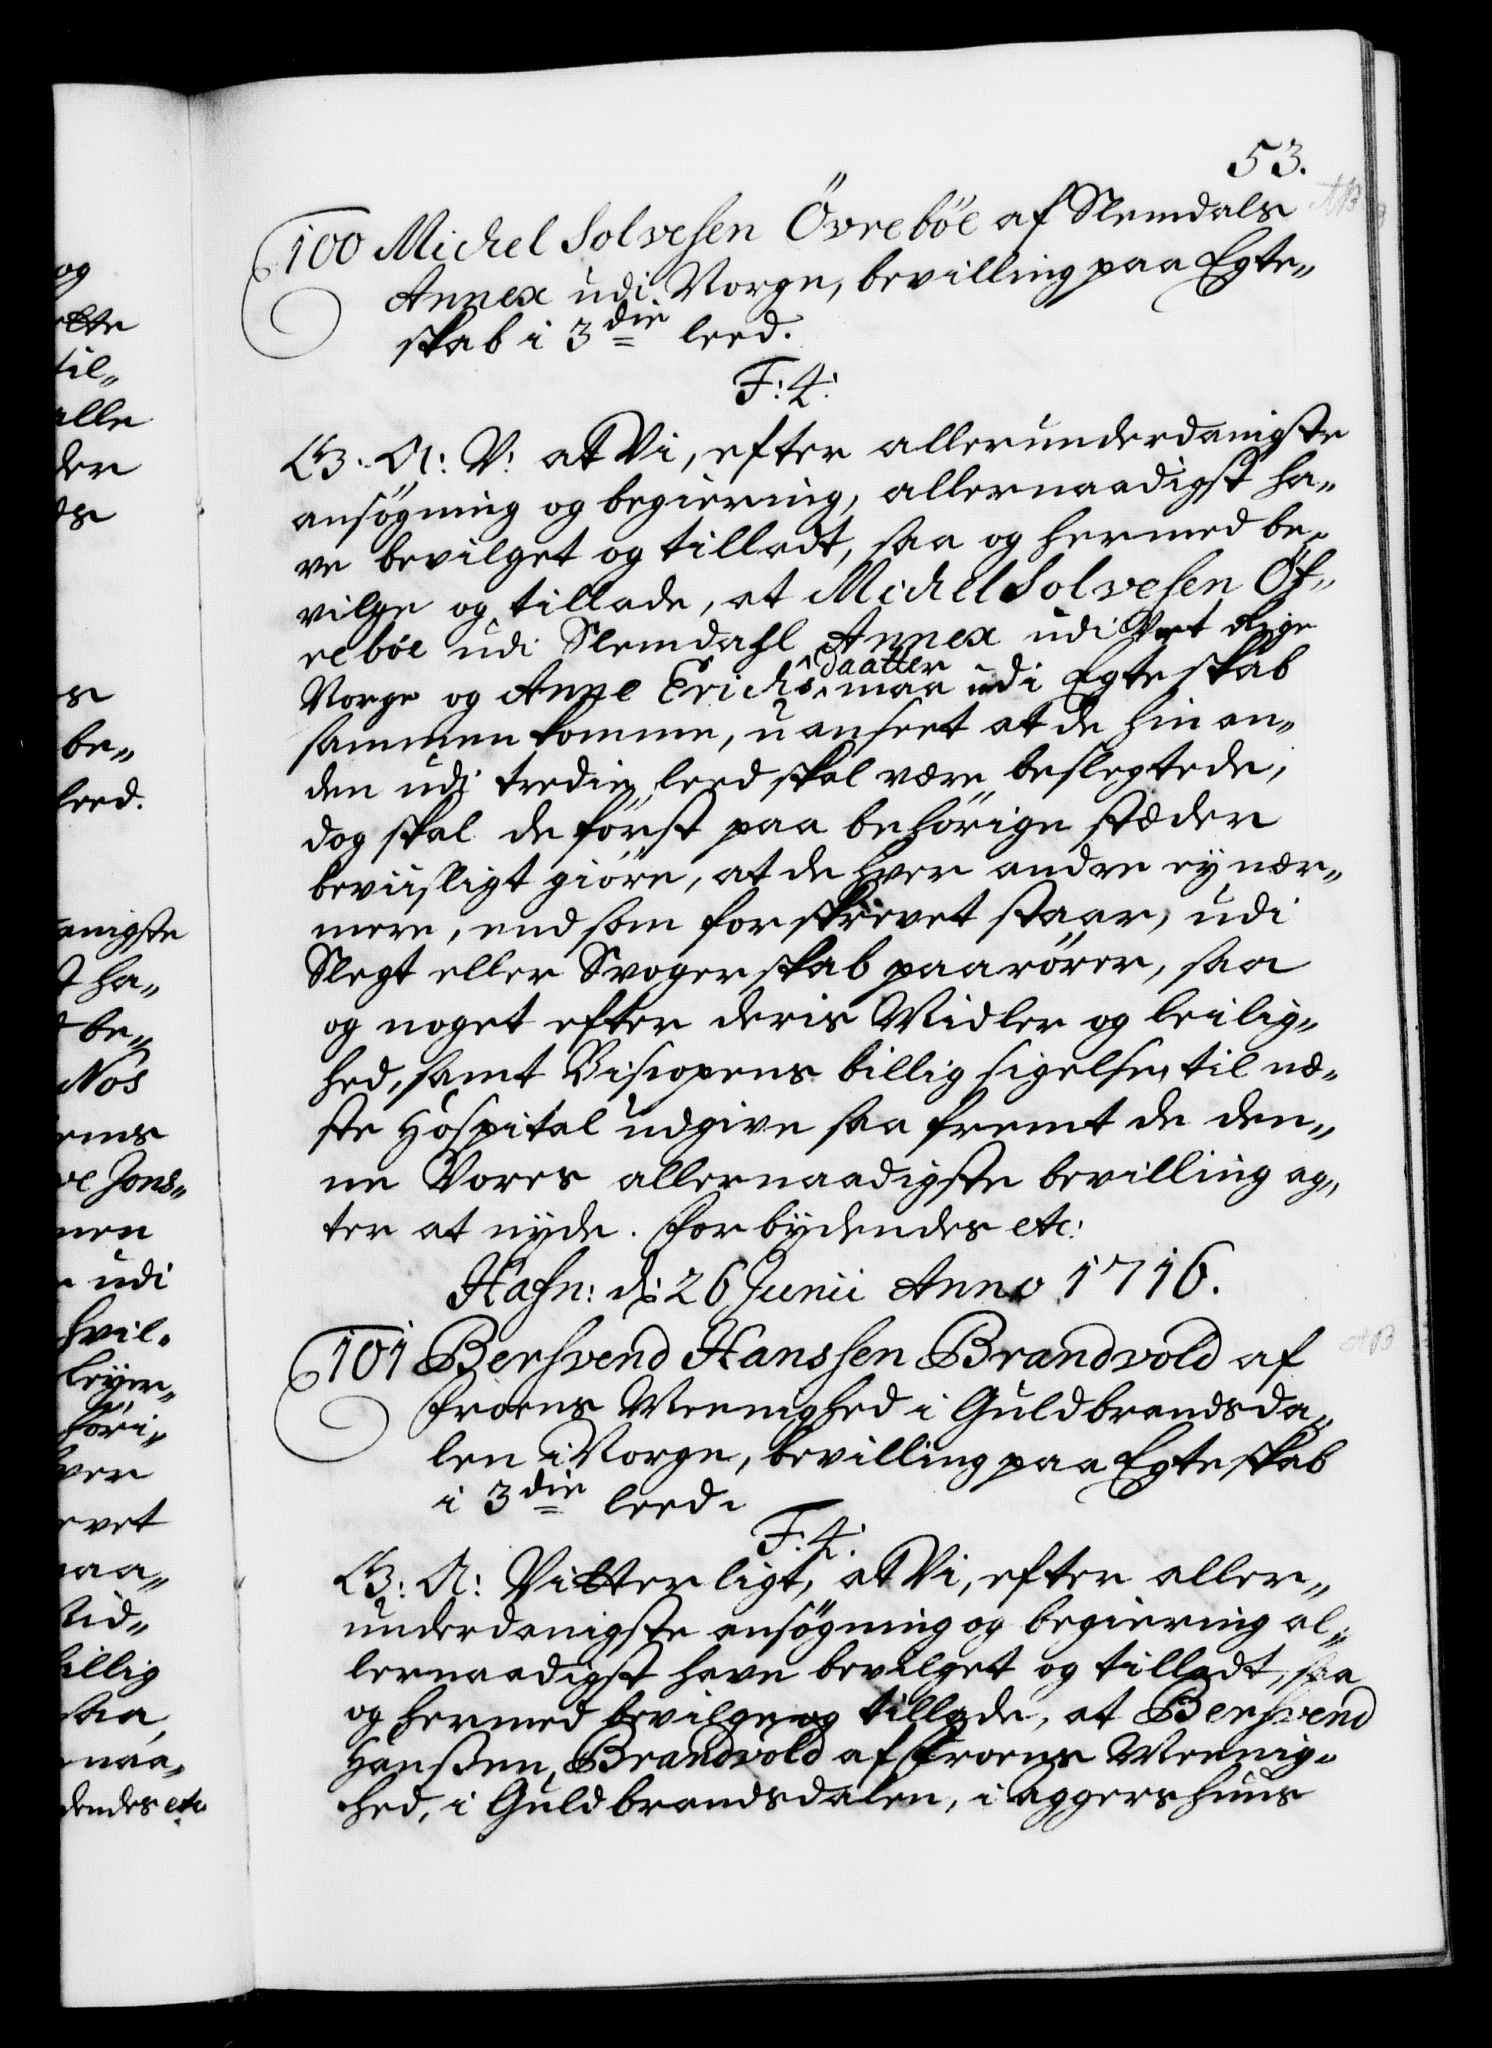 53.
100 Michel Solvesen Övrebøe af Slemdals
Annex udi Norge, bevilling paa Egte„
skab i 3die leed.
F: 4:
G. A: V: at Vi, efter allerunderdanigste
ansögning og begiering, allernaadigst ha„
ve bevilget og tilladt, saa og hermed be„
vilge og tillade, at Michel Solvesen Öf„
rebøe udi Slemdahl Annex udi Vort Rige
Norge og Anne Erichsdaatter maa udi Egteskab
sammenkomme, uanseet at de hinan„
den udi tredie leed skal være beslegtede,
dog skal de först paa behörige stæder
beviisligt giöre, at de hver andre ey nær„
mere, end som forskrevet staar, udi
Slegt eller Svogerskab paarörer, saa
og noget efter deris Midler og leilig„
hed, samt Biscopens billig sigelse, til næ„
ste Hospital udgive saa fremt de den„
ne Vores allernaadigste bevilling ag„
ter at nyde. Forbydendes etc:
Hafn: d: 26 Junii Anno 1716.
101 Berhvend Hanssen Brandvold af
Froens Meenighed i Guldbrandsda„
len i Norge, bevilling paa Egteskab
i 3die leed.
F: 4:
G: A: Vitterligt, at Vi, efter aller„
underdanigste ansögning og begiering al„
lernaadigst have bevilget og tilladt, saa
og hermed bevilge og tillade, at Berhvend
Hanssen Brandvold af Froens Meenig„
hed, i Guldbrandsdalen, i Aggershuus